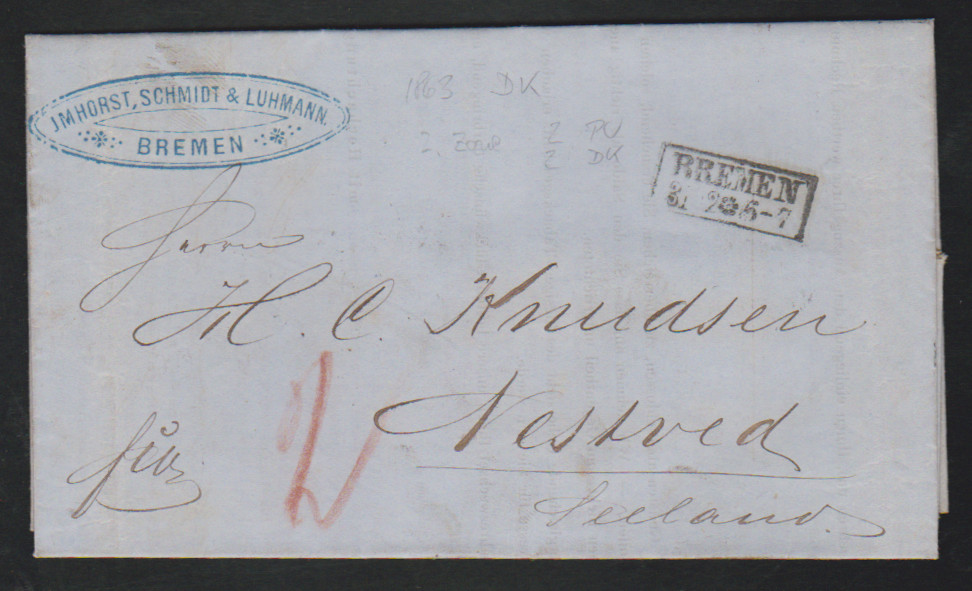 JMHORST, SCHMIDT & LUHMANN.
BREMEN
1863 DK
2 PU
2 DK
BREMEN
31 12 6-7
Herrn
H. C. Knudsen
Nestved
Seeland.
2